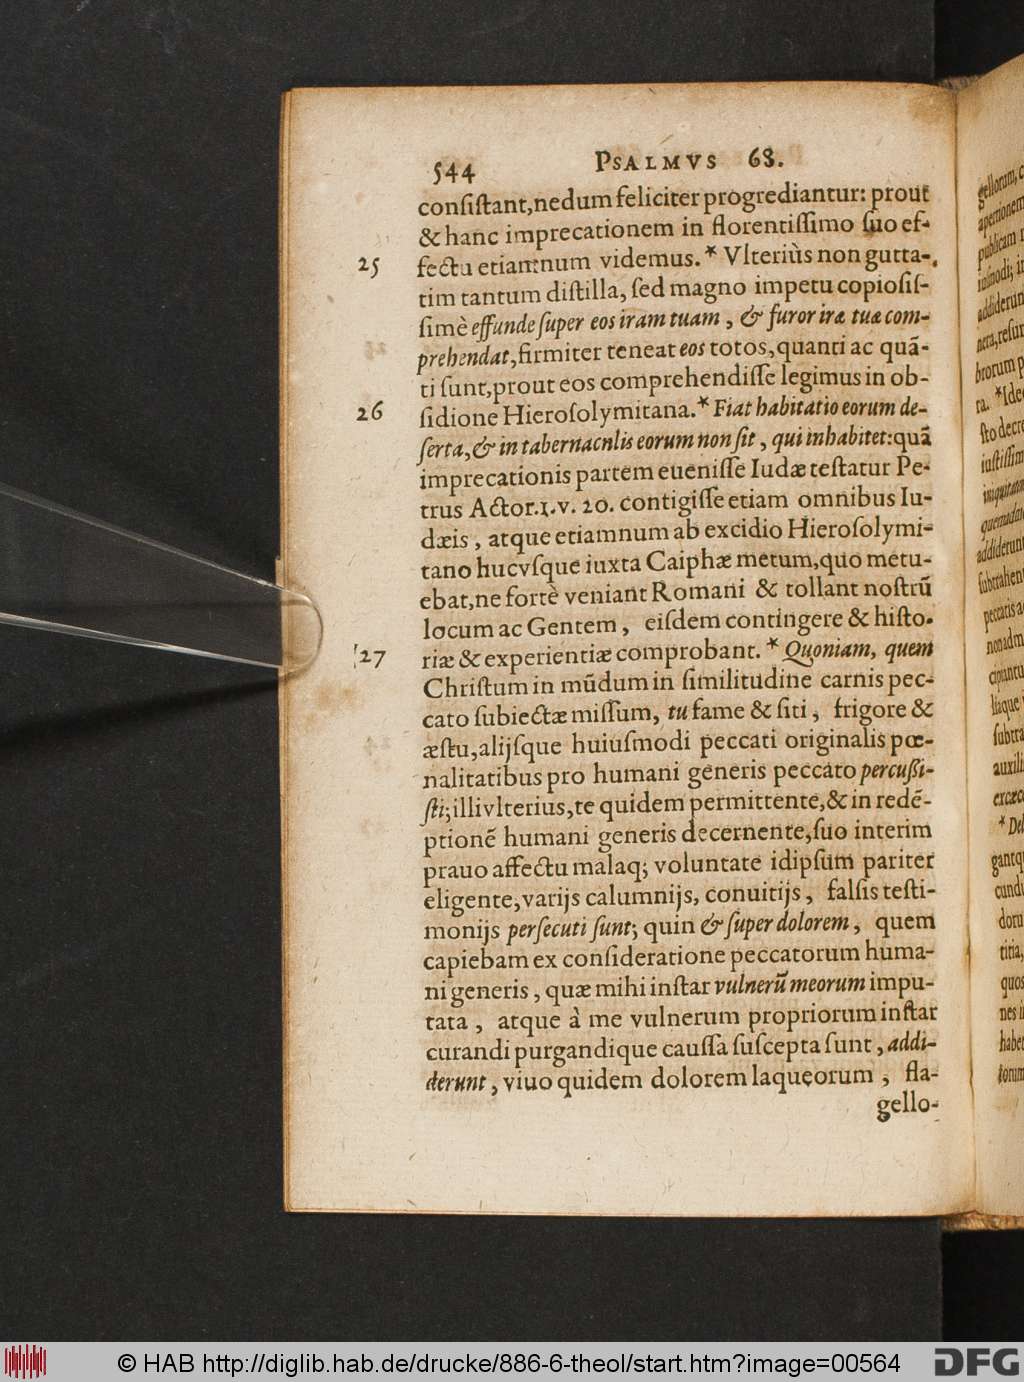 544 PSALMVS 68.
conſiſtant,nedum feliciter progrediantur: prout
& hanc imprecationem in florentiſſimo ſuo ef-
25 fectu etiamnum videmus. * Vlteriùs non gutta-
tim tantum diſtilla, ſed magno impetu copioſiſ-
ſimè effunde ſuper eos iram tuam , & furor iræ tuæ com-
prehendat,firmiter teneat eos totos,quanti ac quã-
ti ſunt,prout eos comprehendiſſe legimus in ob-
26 ſidione Hieroſolymitana. * Fiat habitatio eorum de-
ſerta,& in tabernacnlis eorum non ſit , qui inhabitet:quã
imprecationis partem eueniſſe Iudæ teſtatur Pe-
trus Actor.1.v. 20. contigiſſe etiam omnibus Iu-
dæis , atque etiamnum ab excidio Hieroſolymi-
tano hucvſque iuxta Caiphæ metum,quo metu-
ebat,ne fortè veniant Romani & tollant noſtrũ
locum ac Gentem , eiſdem contingere & hiſto-
27 riæ & experientiæ comprobant. * Quoniam, quem
Chriſtum in mũdum in ſimilitudine carnis pec-
cato ſubiectæ miſſum, tu fame & ſiti , frigore &
æſtu,alijſque huiuſmodi peccati originalis pœ-
nalitatibus pro humani generis peccato percußi-
ſti; illi vlterius,te quidem permittente,& in redẽ-
ptionẽ humani generis decernente,ſuo interim
prauo affectu malaq; voluntate idipſum pariter
eligente,varijs calumnijs, conuitijs , falſis teſti-
monijs perſecuti ſunt; quin & ſuper dolorem , quem
capiebam ex conſideratione peccatorum huma-
ni generis , quæ mihi inſtar vulnerũ meorum impu-
tata , atque à me vulnerum propriorum inſtar
curandi purgandique cauſſa ſuſcepta ſunt , addi-
derunt , viuo quidem dolorem laqueorum , fla-
gello-
© HAB http://diglib.hab.de/drucke/886-6-theol/start.htm?image=00564
DFG